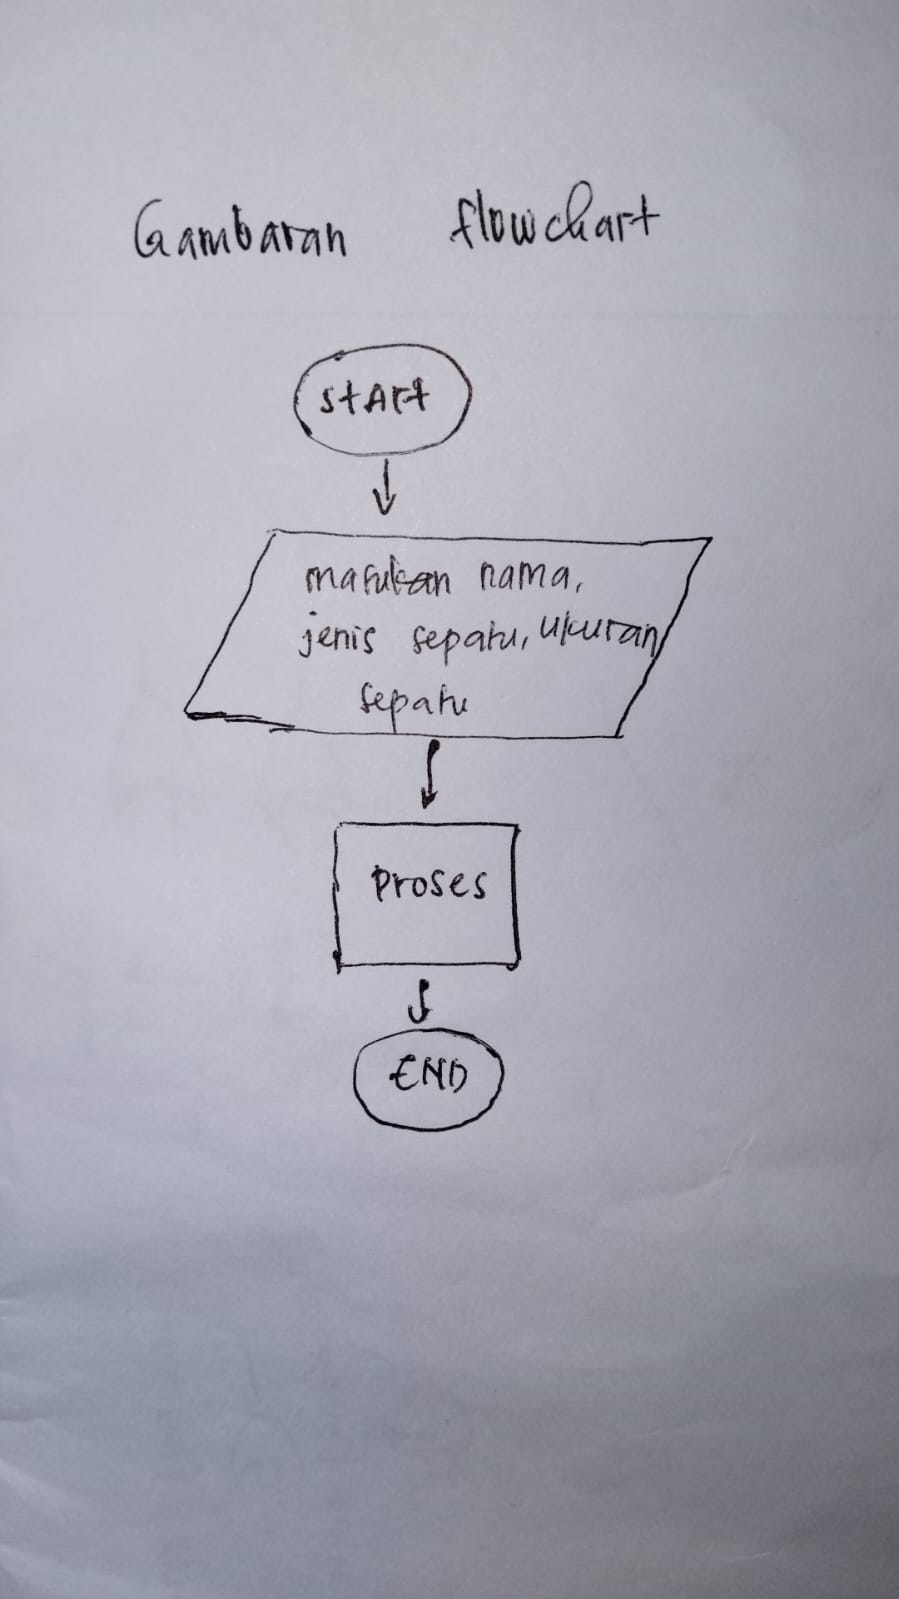 Gambaran flowchart
StArt
masukan nama,
jenis sepatu, ukuran
sepatu
Proses
END